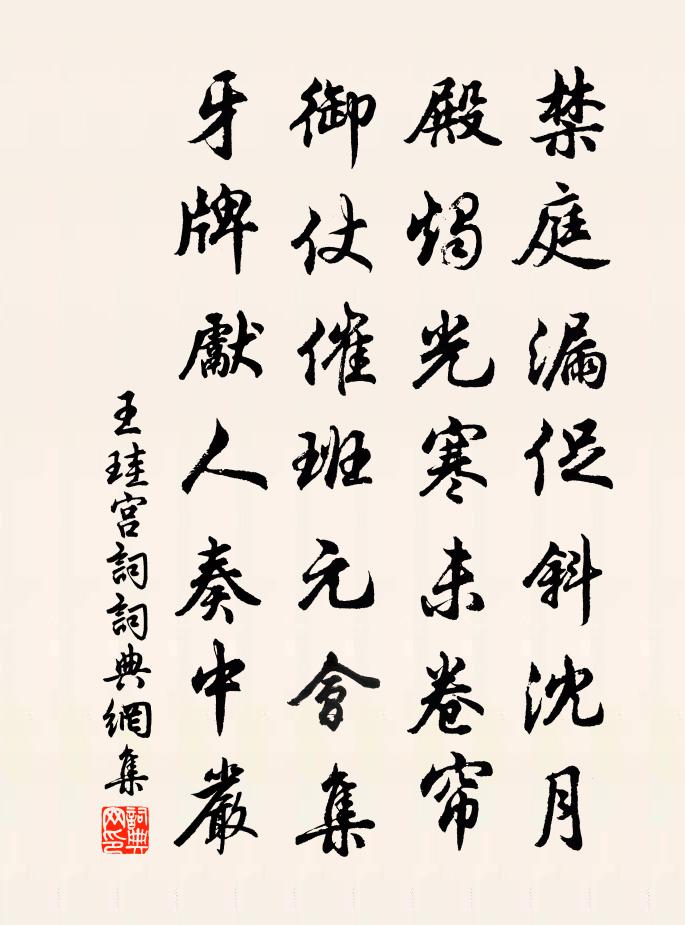 禁庭漏促斜沈月
殿燭光寒未卷帘
御仗催班元會集
牙牌獻人奏中嚴
王珪宮詞詞典網集
詞典網印